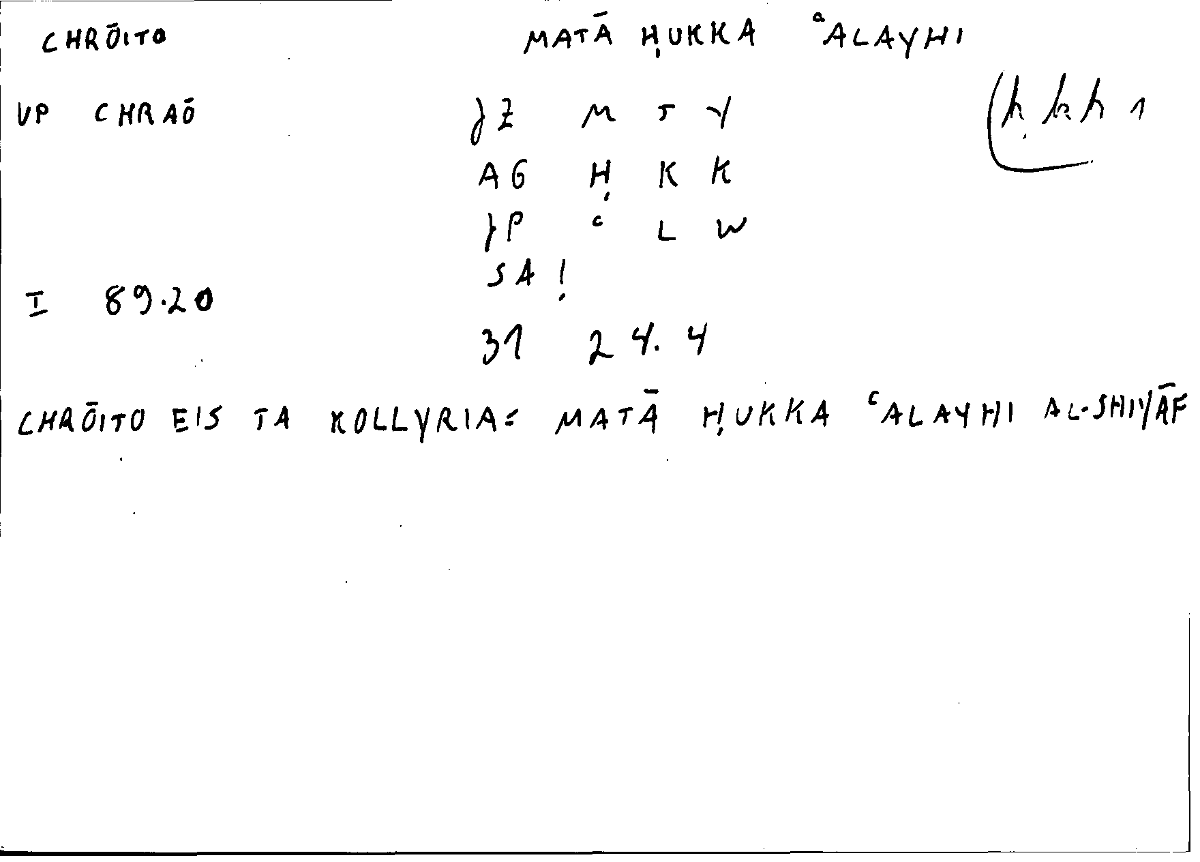 CHRŌITO MATĀ ḤUKKA ʿALAYHI
VP CHRAŌ JZ M T Y (ḥkk 1
AG Ḥ K K
JP ʿ L W
SA !
I 89.20
31 24.4
CHRŌITO EIS TA KOLLYRIA = MATĀ ḤUKKA ʿALAYHI AL-SHIYĀF